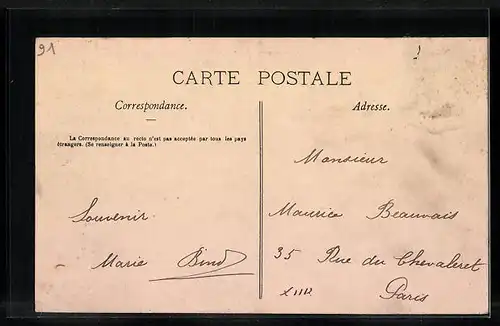 91
CARTE POSTALE
Correspondance.
La Correspondance au recto n'est pas acceptée par tous les pays
étrangers. (Se renseigner à la Poste.)
Souvenir
Marie
Adresse.
Monsieur
Maurice Beauvais
35 Rue du Chevaleret
Paris